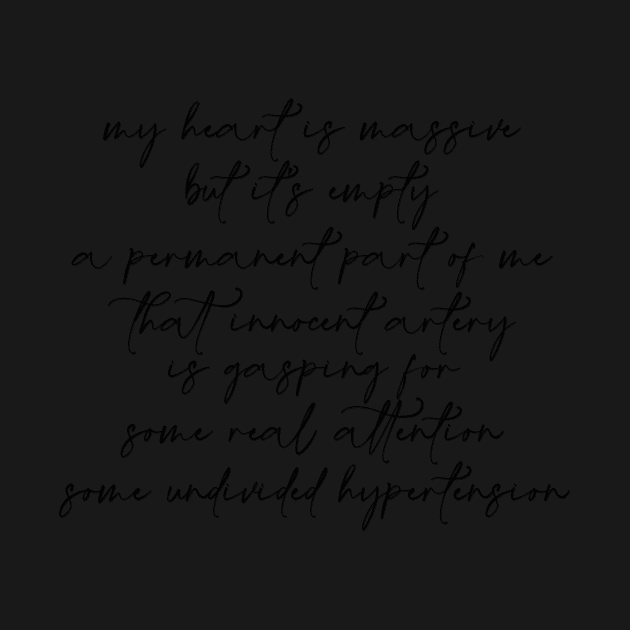 my heart is massive
but it's empty
a permanent part of me
that innocent artery
is gasping for
some real attention
some undivided hypertension